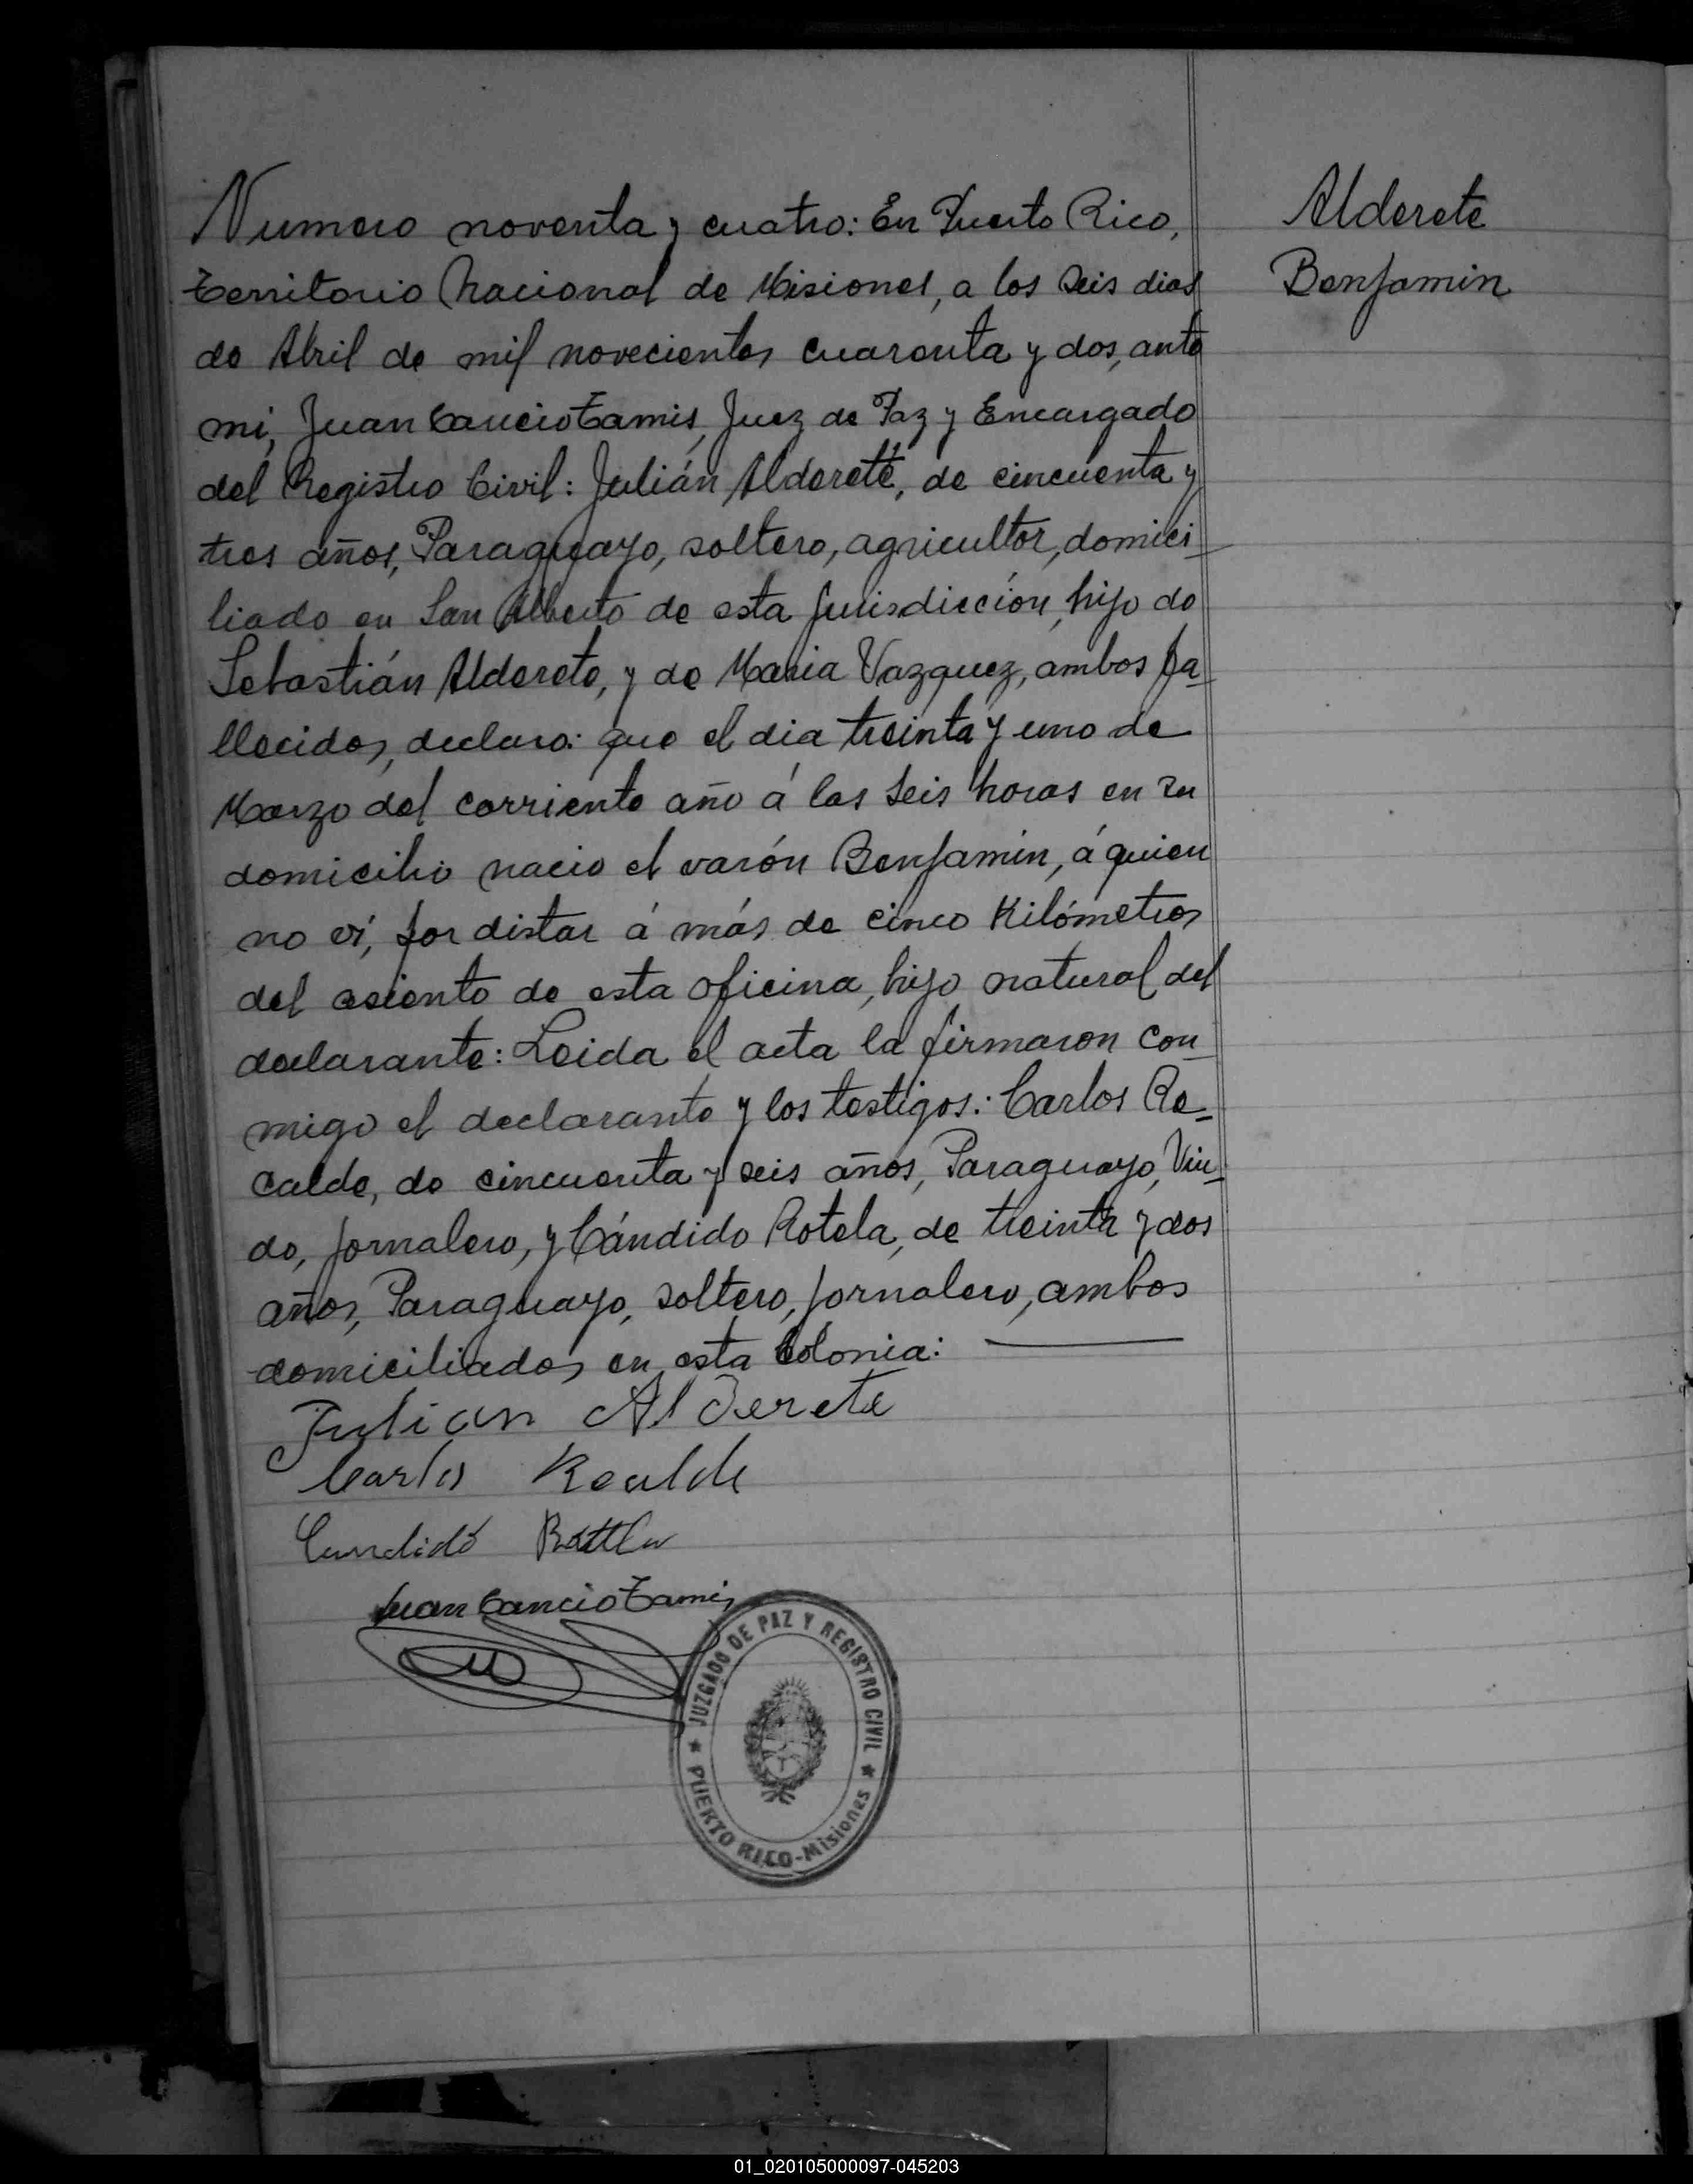 Alderete
Benjamin
Numero noventa y cuatro: En Puerto Rico,
Territorio Nacional de Misiones, a los seis dias
de Abril de mil novecientos cuarenta y dos, ante
mi, Juan Cancio Tamis, Juez de Paz y Encargado
del Registro Civil: Julián Alderete, de cincuenta y
tres años, Paraguayo, soltero, agricultor, domici-
liado en San Alberto de esta jurisdicción, hijo de
Sebastián Alderete, y de Maria Vazquez, ambos fa-
llecidos, declaro: que el dia treinta y uno de
Marzo del corriente año á las seis horas en su
domicilio nacio el varón Benjamin, á quien
no vi, por distar á más de cinco Kilómetros
del asiento de esta oficina, hijo natural del
declarante: Leida el acta la firmaron con-
migo el declarante y los testigos: Carlos Re-
calde, de cincuenta y seis años, Paraguayo, Viu-
do, jornalero, y Cándido Rotela, de treinta y dos
años, Paraguayo, soltero, jornalero, ambos
domiciliados en esta Colonia:
Julian Alderete
Carlos
Candido
Juan Cancio Tamis
JUZGADO DE PAZ Y REGISTRO CIVIL
PUERTO RICO-Misiones
01_020105000097-045203